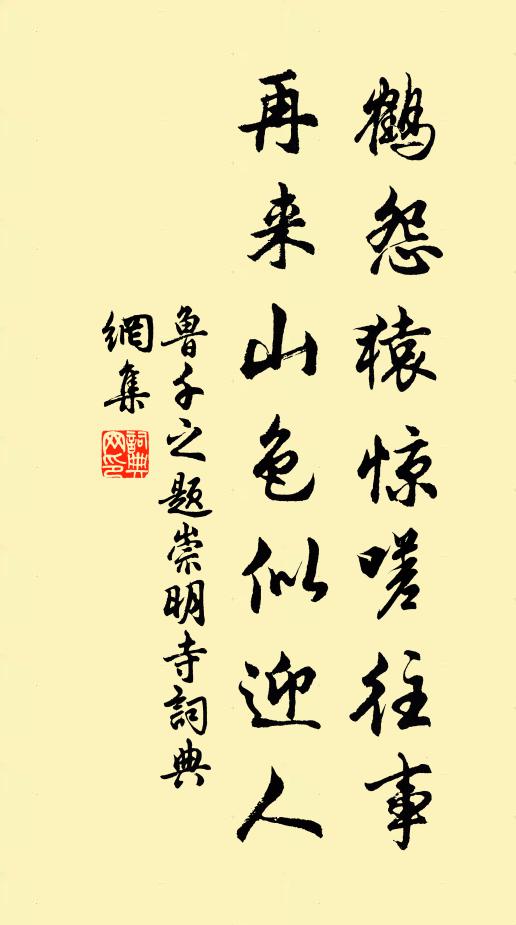 鹤怨猿惊嗟往事
再来山色似迎人
魯千之题崇明寺詞典
網集
詞典
网印